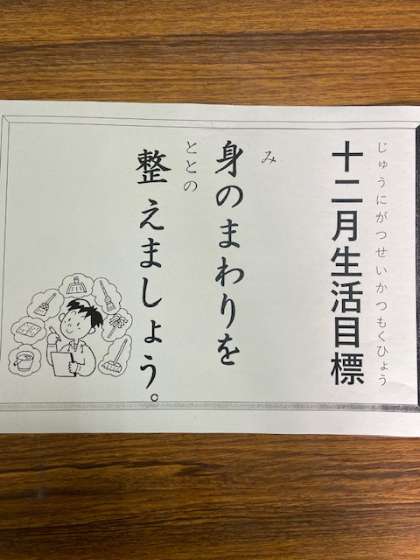 じゅうにがつせいかつもくひょう
十二月生活目標
み
身のまわりを
ととの
整えましょう。